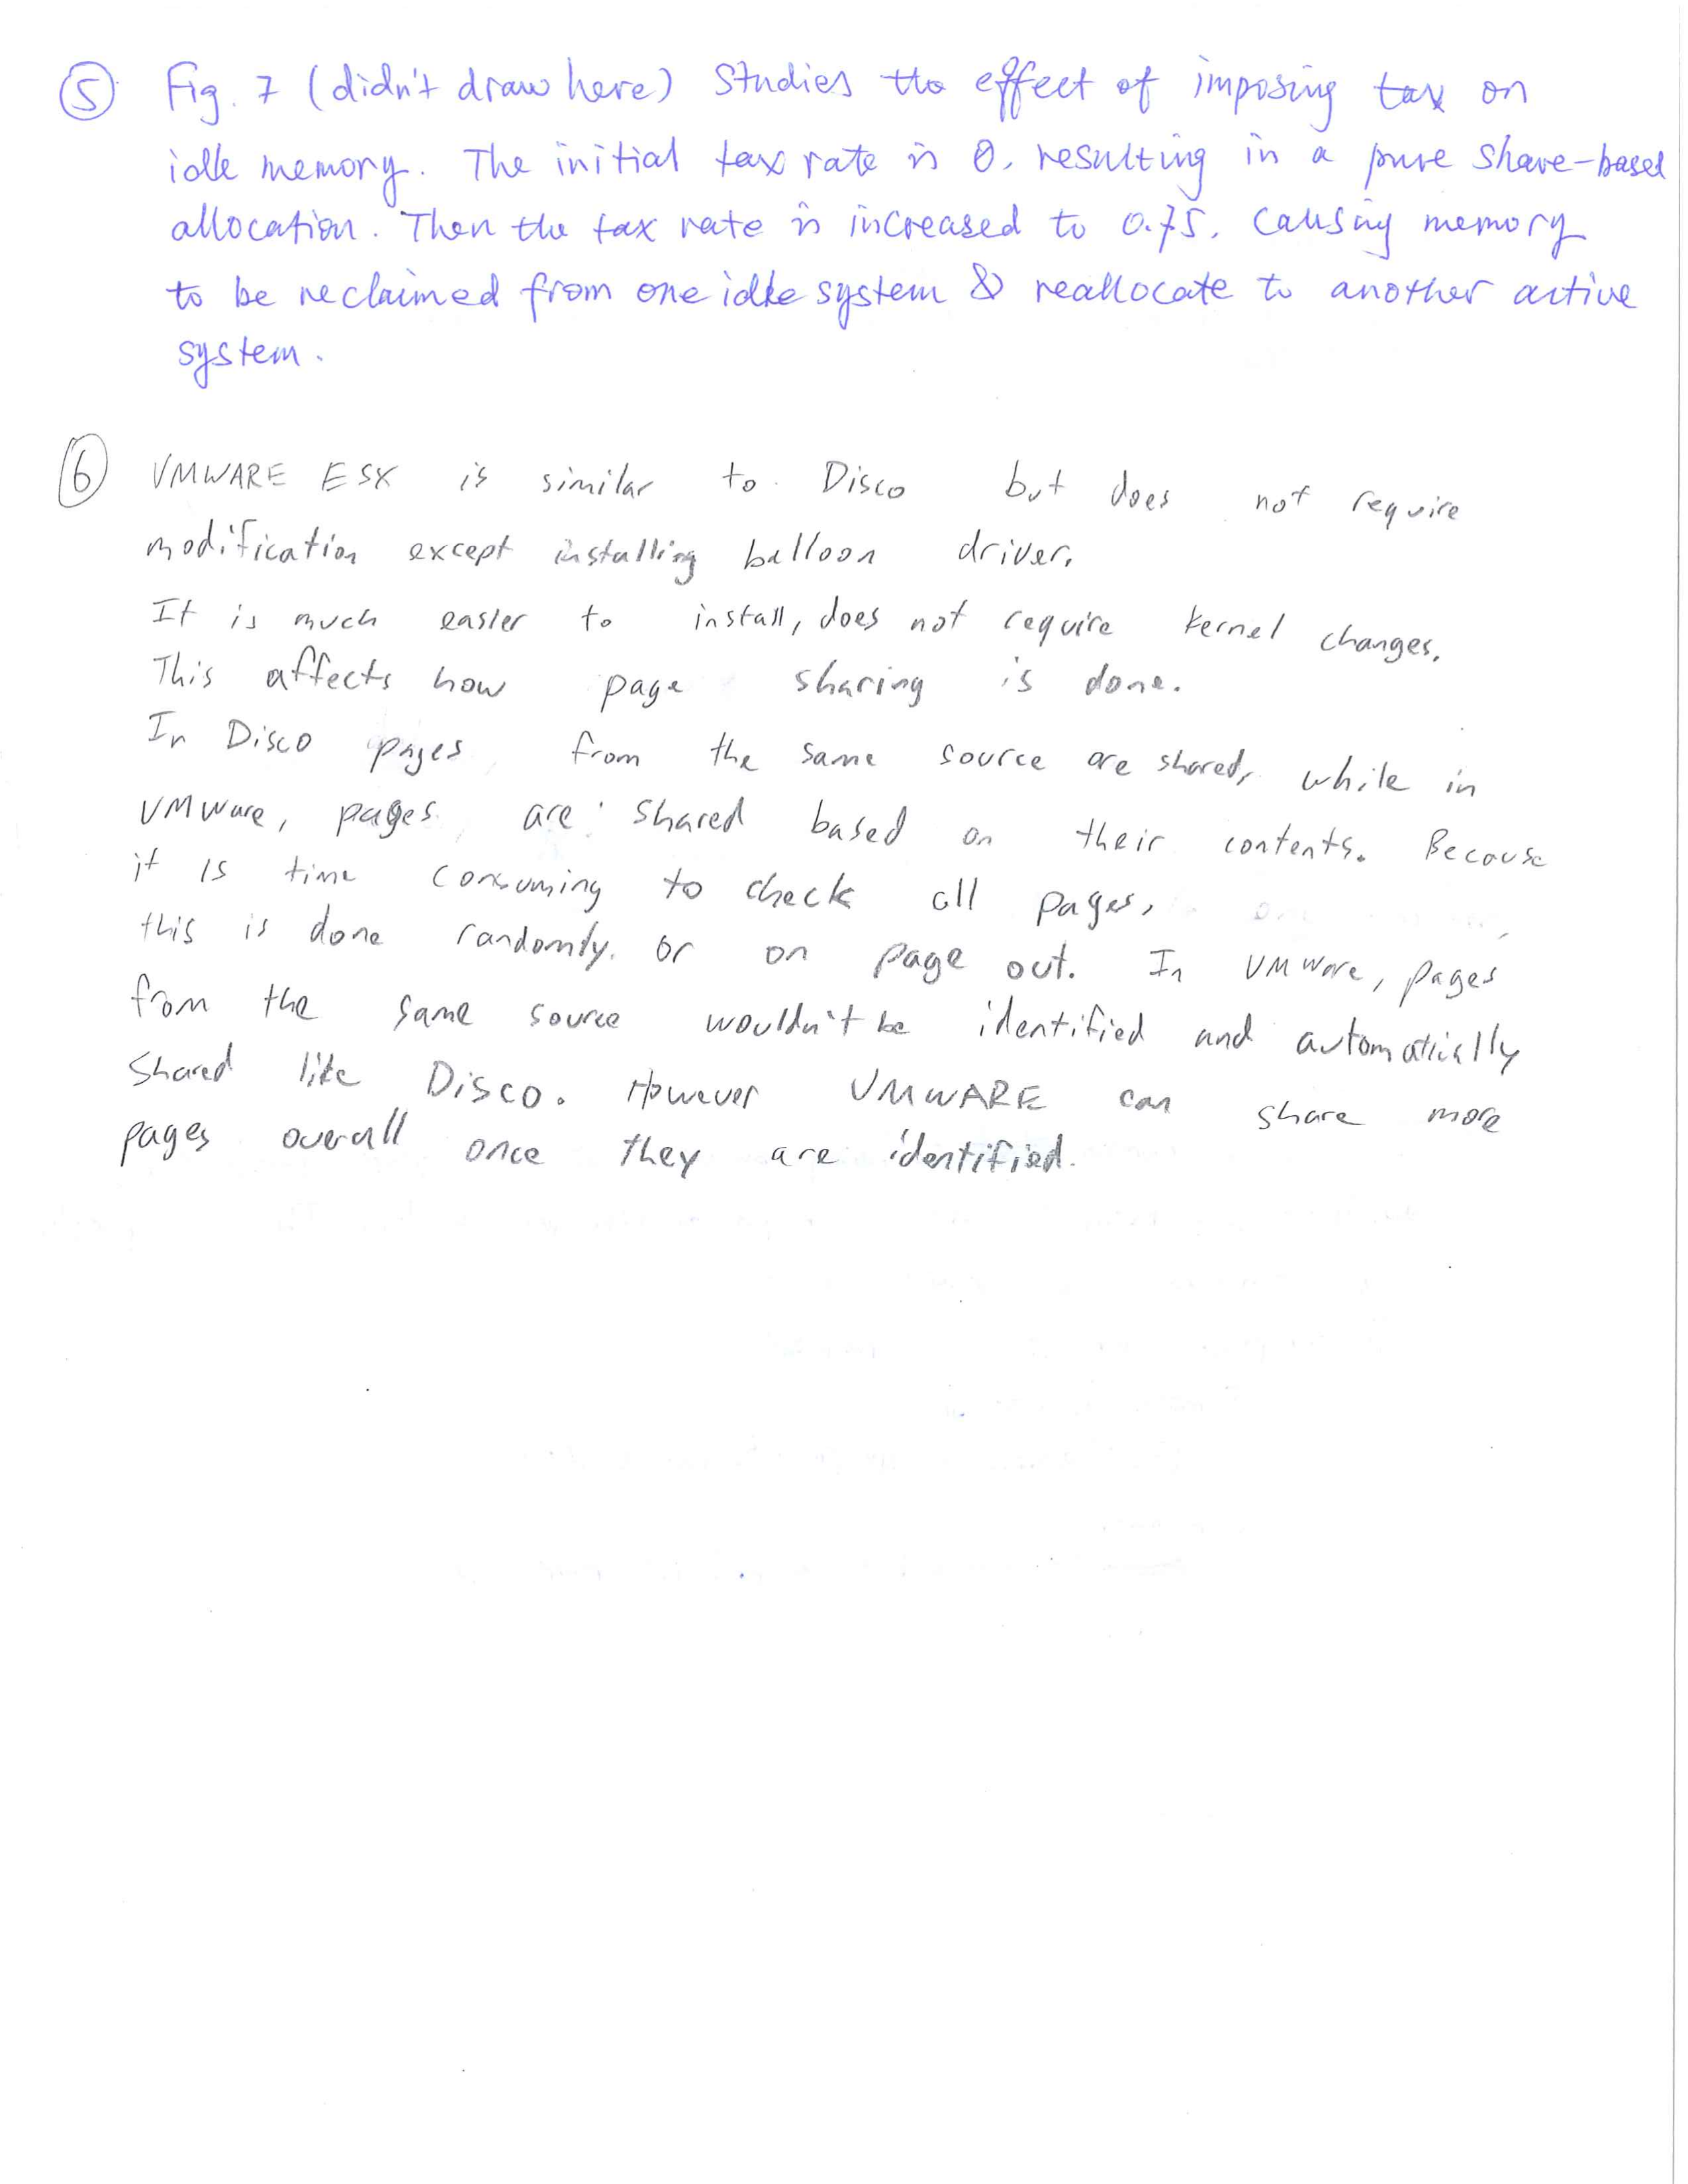 ⑤ Fig. 7 (didn't draw here) Studies the effect of imposing tax on
idle memory. The initial tax rate is 0, resulting in a pure share-based
allocation. Then the tax rate is increased to 0.75, causing memory
to be reclaimed from one idle system & reallocate to another active
system.
⑥ VMWARE ESX is similar to Disco but does not require
modification except installing balloon driver.
It is much easier to install, does not require kernel changes.
This affects how page sharing is done.
In Disco pages from the same source are shared, while in
VMware, pages are shared based on their contents. Because
it is time consuming to check all pages,
this is done randomly. or on page out. In VMware, pages
from the same source wouldn't be identified and automatically
shared like Disco. However VMWARE can share more
pages overall once they are identified.